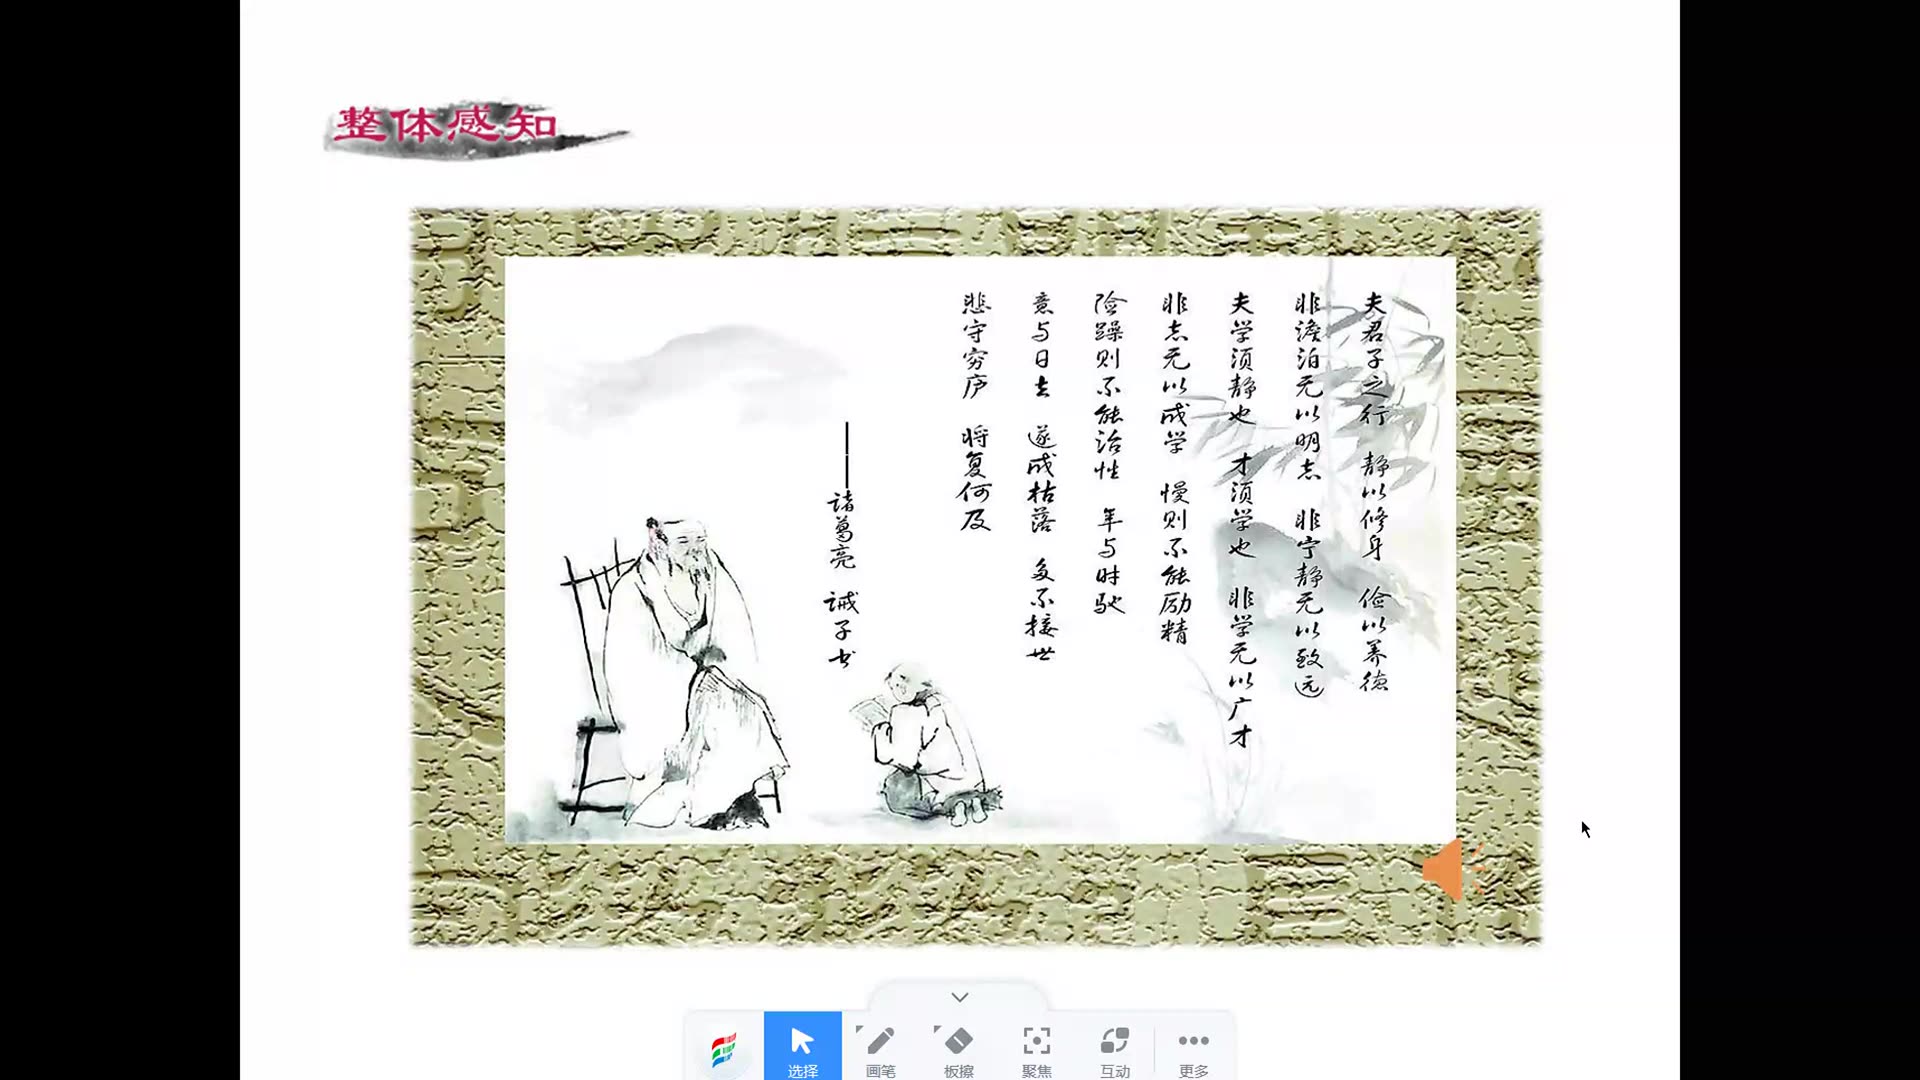 整体感知
夫君子之行 静以修身 俭以养德
非澹泊无以明志 非宁静无以致远
夫学须静也 才须学也 非学无以广才
非志无以成学 慢则不能励精
险躁则不能治性 年与时驰
意与日去 遂成枯落 多不接世
悲守穷庐 将复何及
——诸葛亮 诫子书
选择 画笔 板擦 聚焦 互动 更多